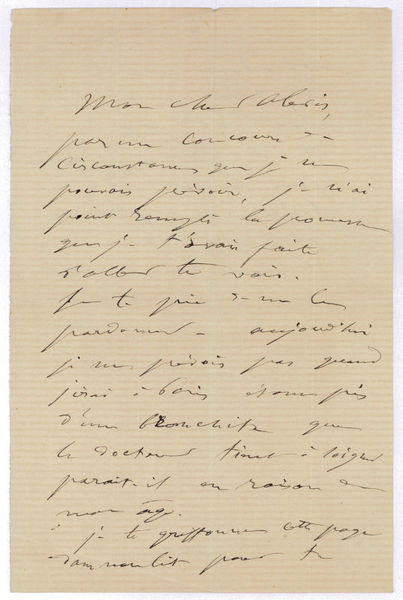 Mon cher Alexis,
par un concours de
circonstances que je ne
pouvais prévoir, je n'ai
point rempli la promesse
que je t'avais faite
d'aller te voir.
Je te prie de me le
pardonner - aujourd'hui
je ne prévois pas quand
j'irai à Paris étant pris
d'une bronchite que
le docteur tient à soigner
parait-il en raison de
mon âge.
je te griffonne cette page
dans mon lit pour te